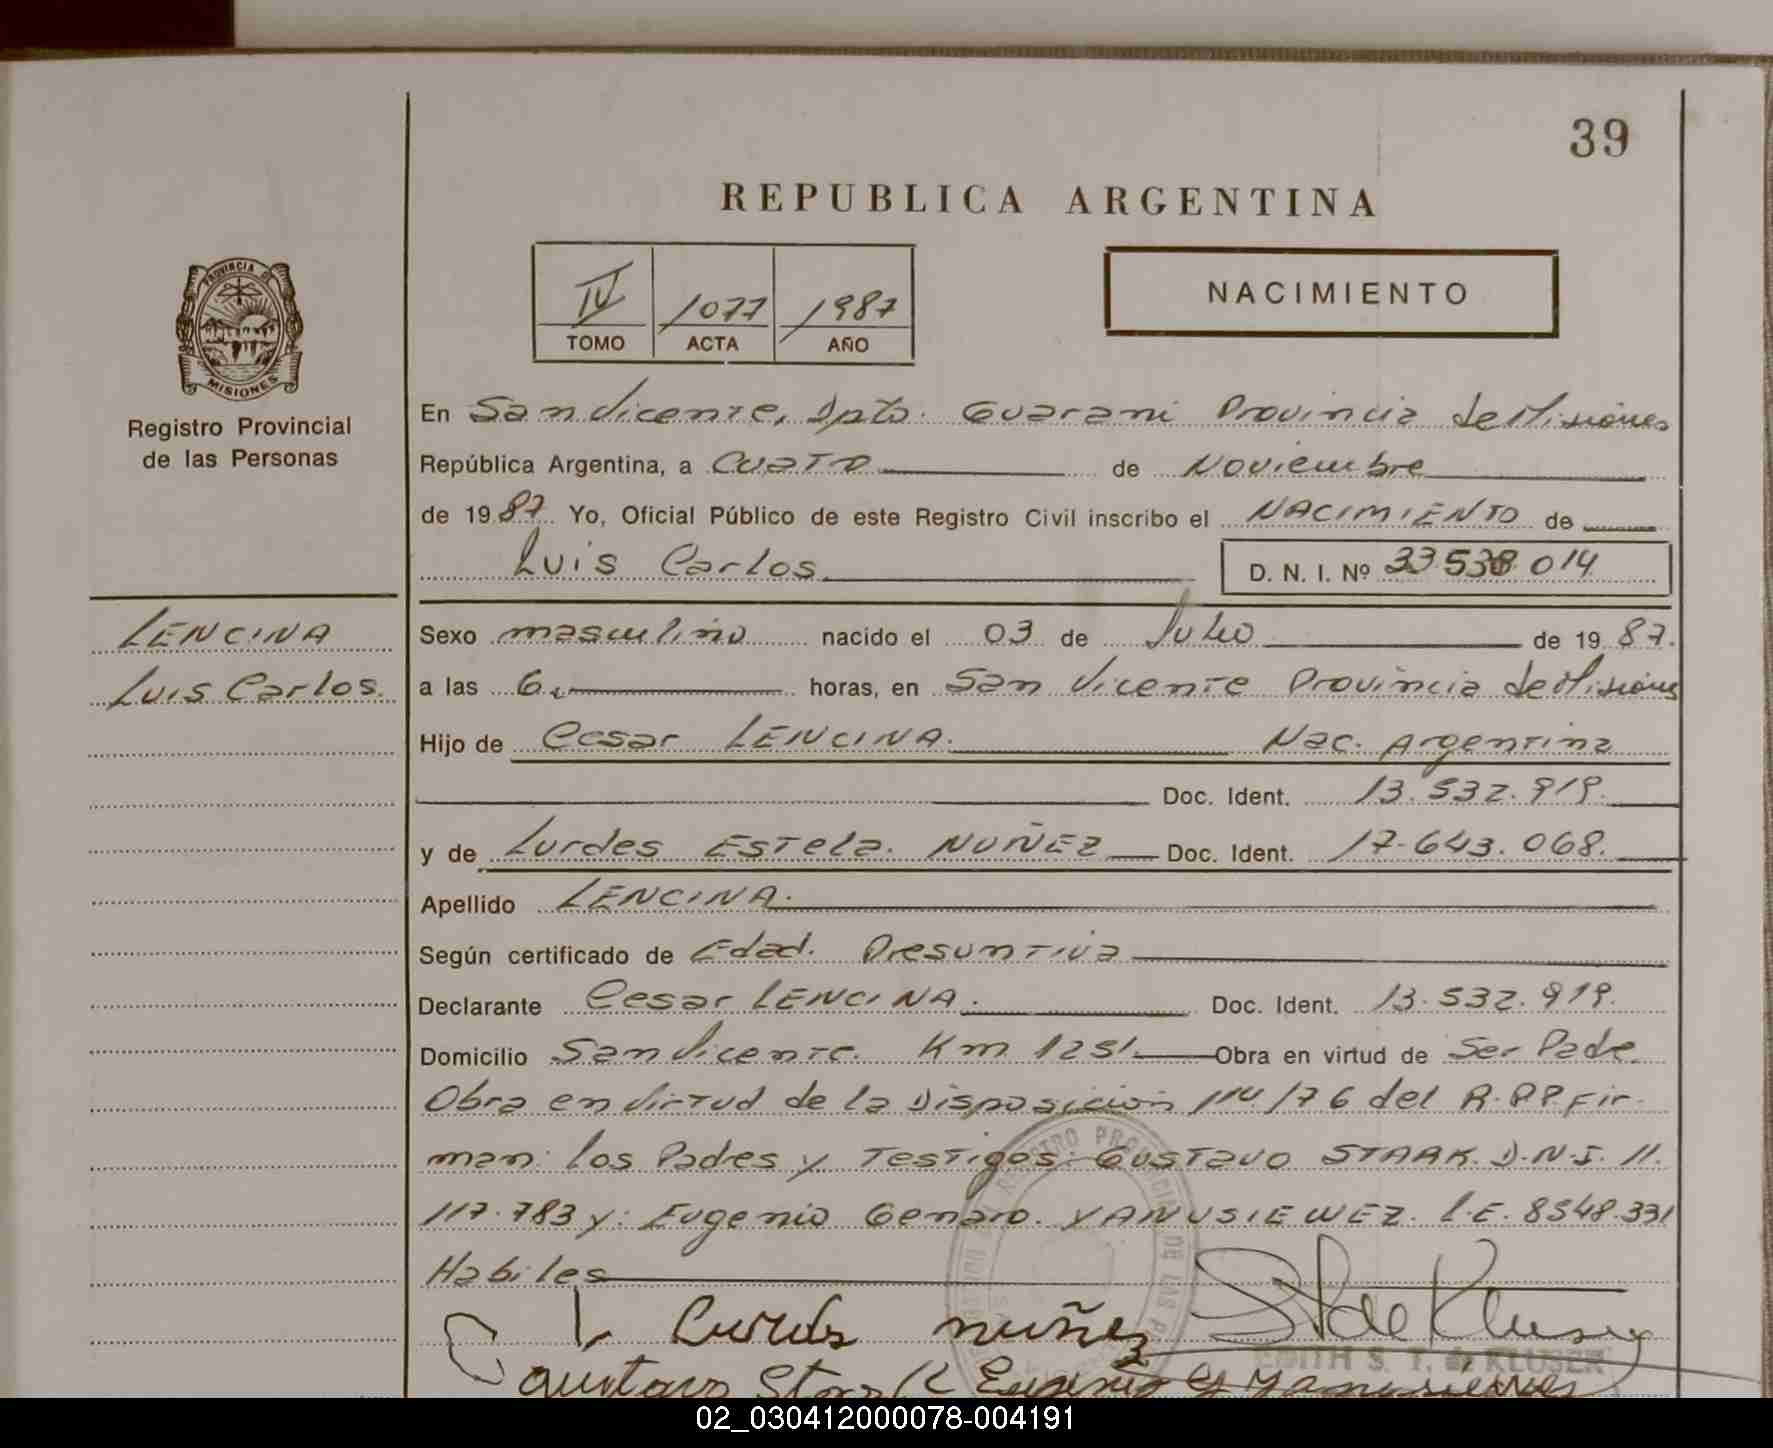 39
REPUBLICA ARGENTINA
IV 1077 1987
TOMO ACTA AÑO
NACIMIENTO
PROVINCIA DE
MISIONES
Registro Provincial
de las Personas
En San Vicente, Dpto. Guarani Provincia de Misiones
República Argentina, a Cuatro de Noviembre
de 1987 Yo, Oficial Público de este Registro Civil inscribo el NACIMIENTO de
Luis Carlos
D. N. I. Nº 33 538 014
LENCINA
Luis Carlos.
Sexo masculino nacido el 03 de Julio de 1987.
a las 6 horas, en San Vicente Provincia de Misiones
Hijo de Cesar LENCINA. Nac. Argentina
Doc. Ident. 13.532.919.
y de Lurdes Estela. NUÑEZ Doc. Ident. 17.643.068.
Apellido LENCINA.
Según certificado de Edad. Presuntiva
Declarante Cesar LENCINA. Doc. Ident. 13.532.919.
Domicilio San Vicente. Km 1251 Obra en virtud de Ser Padre
Obra en virtud de la Disposición 114/76 del R.P.P. Fir-
man: los Padres y Testigos: GUSTAVO STARK. D.N.I. 11.
117.783 y: Eugenio Genaro. YANUSIEWEZ. L.E. 8548.331
Habiles
REGISTRO PROVINCIAL DE LAS P
Lurdes nuñez
EDITH S. T. de KLUSER
Gustavo Stark Eugenio G Yanusiewez
02_030412000078-004191